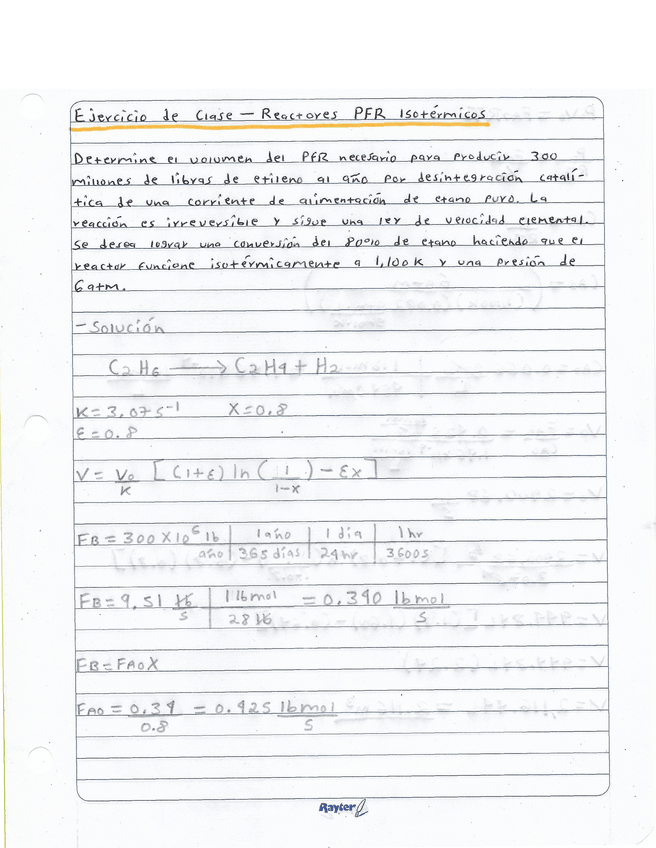 Ejercicio de Clase — Reactores PFR Isotérmicos
Determine el volumen del PFR necesario para producir 300
millones de libras de etileno al año por desintegración catalí-
tica de una corriente de alimentación de etano puro. La
reacción es irreversible y sigue una ley de velocidad elemental.
Se desea lograr una conversión del 80% de etano haciendo que el
reactor funcione isotérmicamente a 1,100K y una presión de
6atm.
- Solución
C2H6 ⟶ C2H4 + H2
K = 3.07 s^-1 X = 0.8
ε = 0.8
V = V0/K [(1+ε) ln(1/(1-x)) - εx]
FB = 300 X10^6 lb/año | 1 año/365 días | 1 día/24 hr | 1 hr/3600s
FB = 9.51 lb/s | 1 lbmol/28 lb = 0.340 lbmol/s
FB = FA0X
FA0 = 0.34/0.8 = 0.425 lbmol/s
Rayter